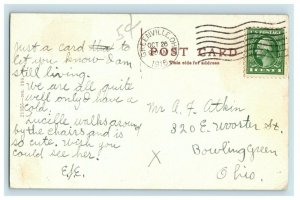 5¢
GREENVILLE, OHIO
OCT 26
1916
POST CARD
This side for address
U.S. POSTAGE
1 CENT 1
Just a card that to
let you know I am
still living.
We are all quite
well only I have a
cold.
Lucille walks around
by the chairs and is
so cute. Wish you
could see her.
E/E.
Mr A. F. Atkin
320 E. Wooster St.
X
Bowling Green
Ohio.